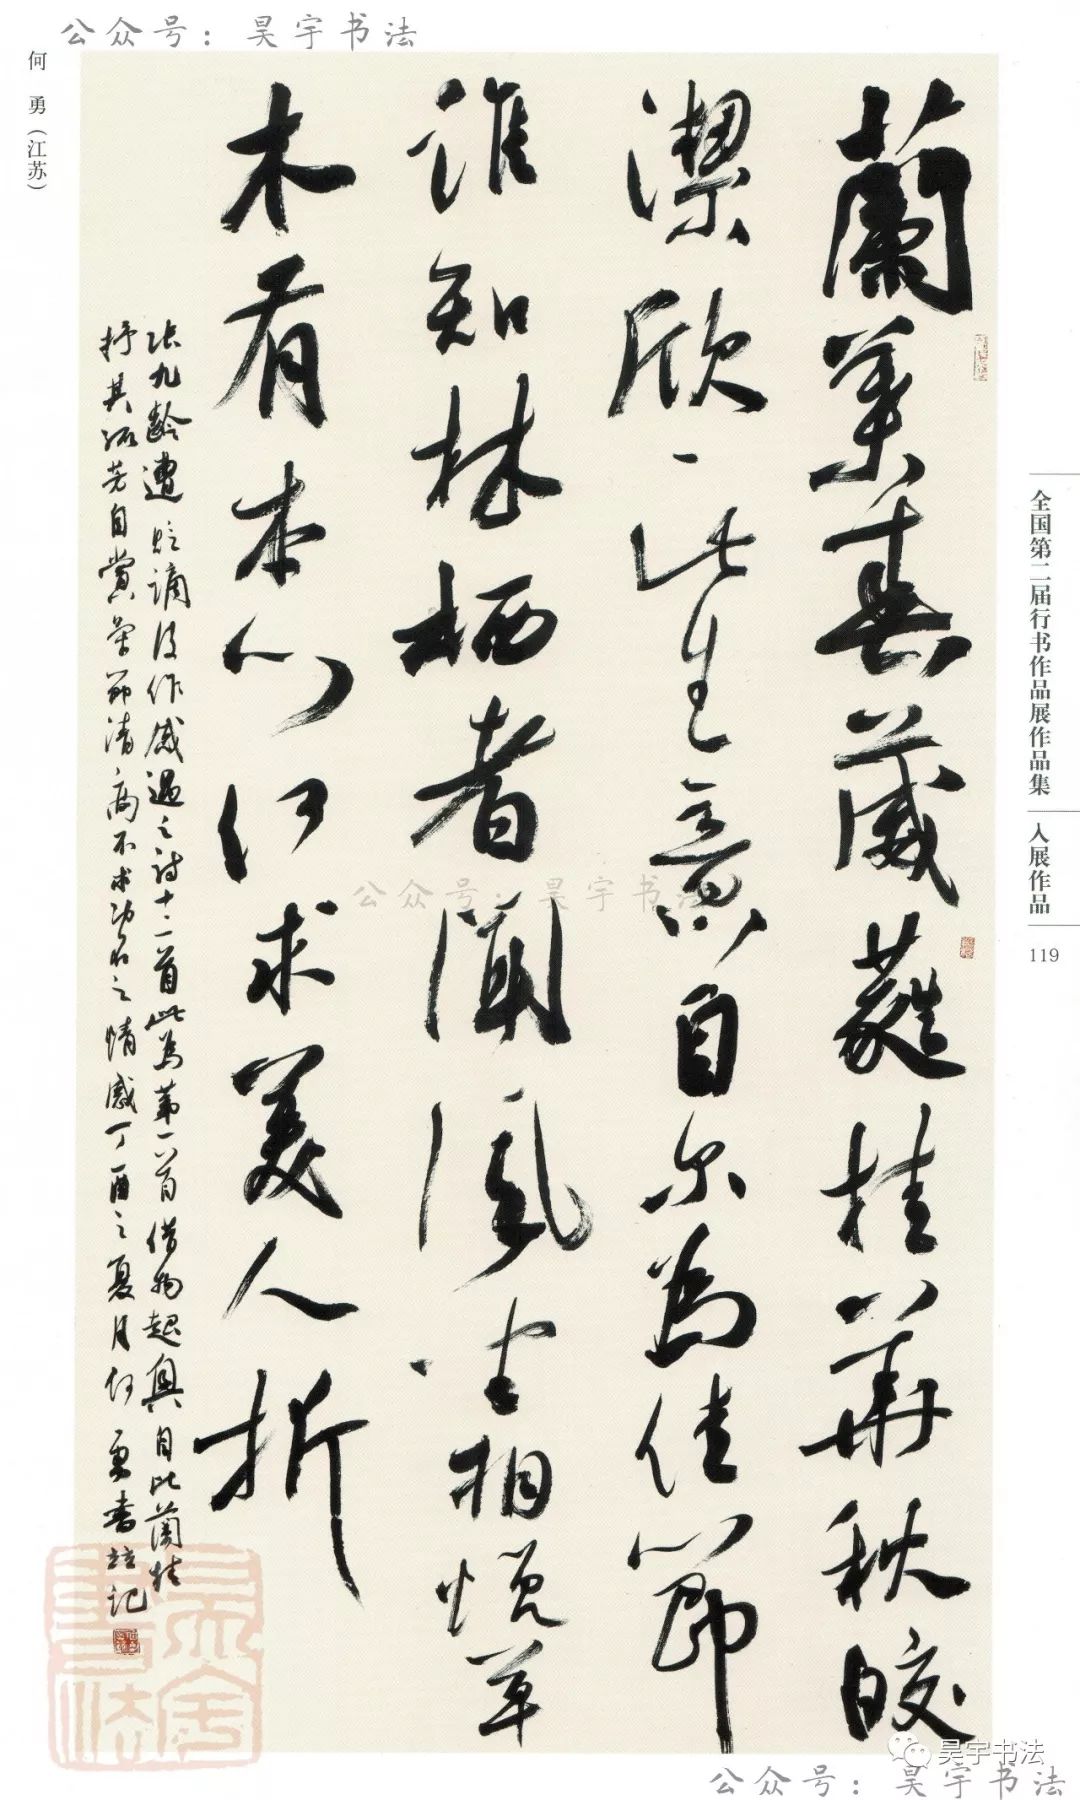 公众号：昊宇书法
何勇（江苏）
蘭葉春葳蕤桂華秋皎
潔欣〻此生意自尔為佳節
誰知林栖者聞風坐相悦草
木有本心何求美人折
張九齡遭貶謫後作感遇之詩十二首此為第一首借物起興自比蘭桂
抒其孤芳自賞氣節清高不求功名之情感丁酉之夏月何勇書並記
全国第二届行书作品展作品集
入展作品
119
公众号：昊宇书法
昊宇書法
昊宇书法
公众号：昊宇书法